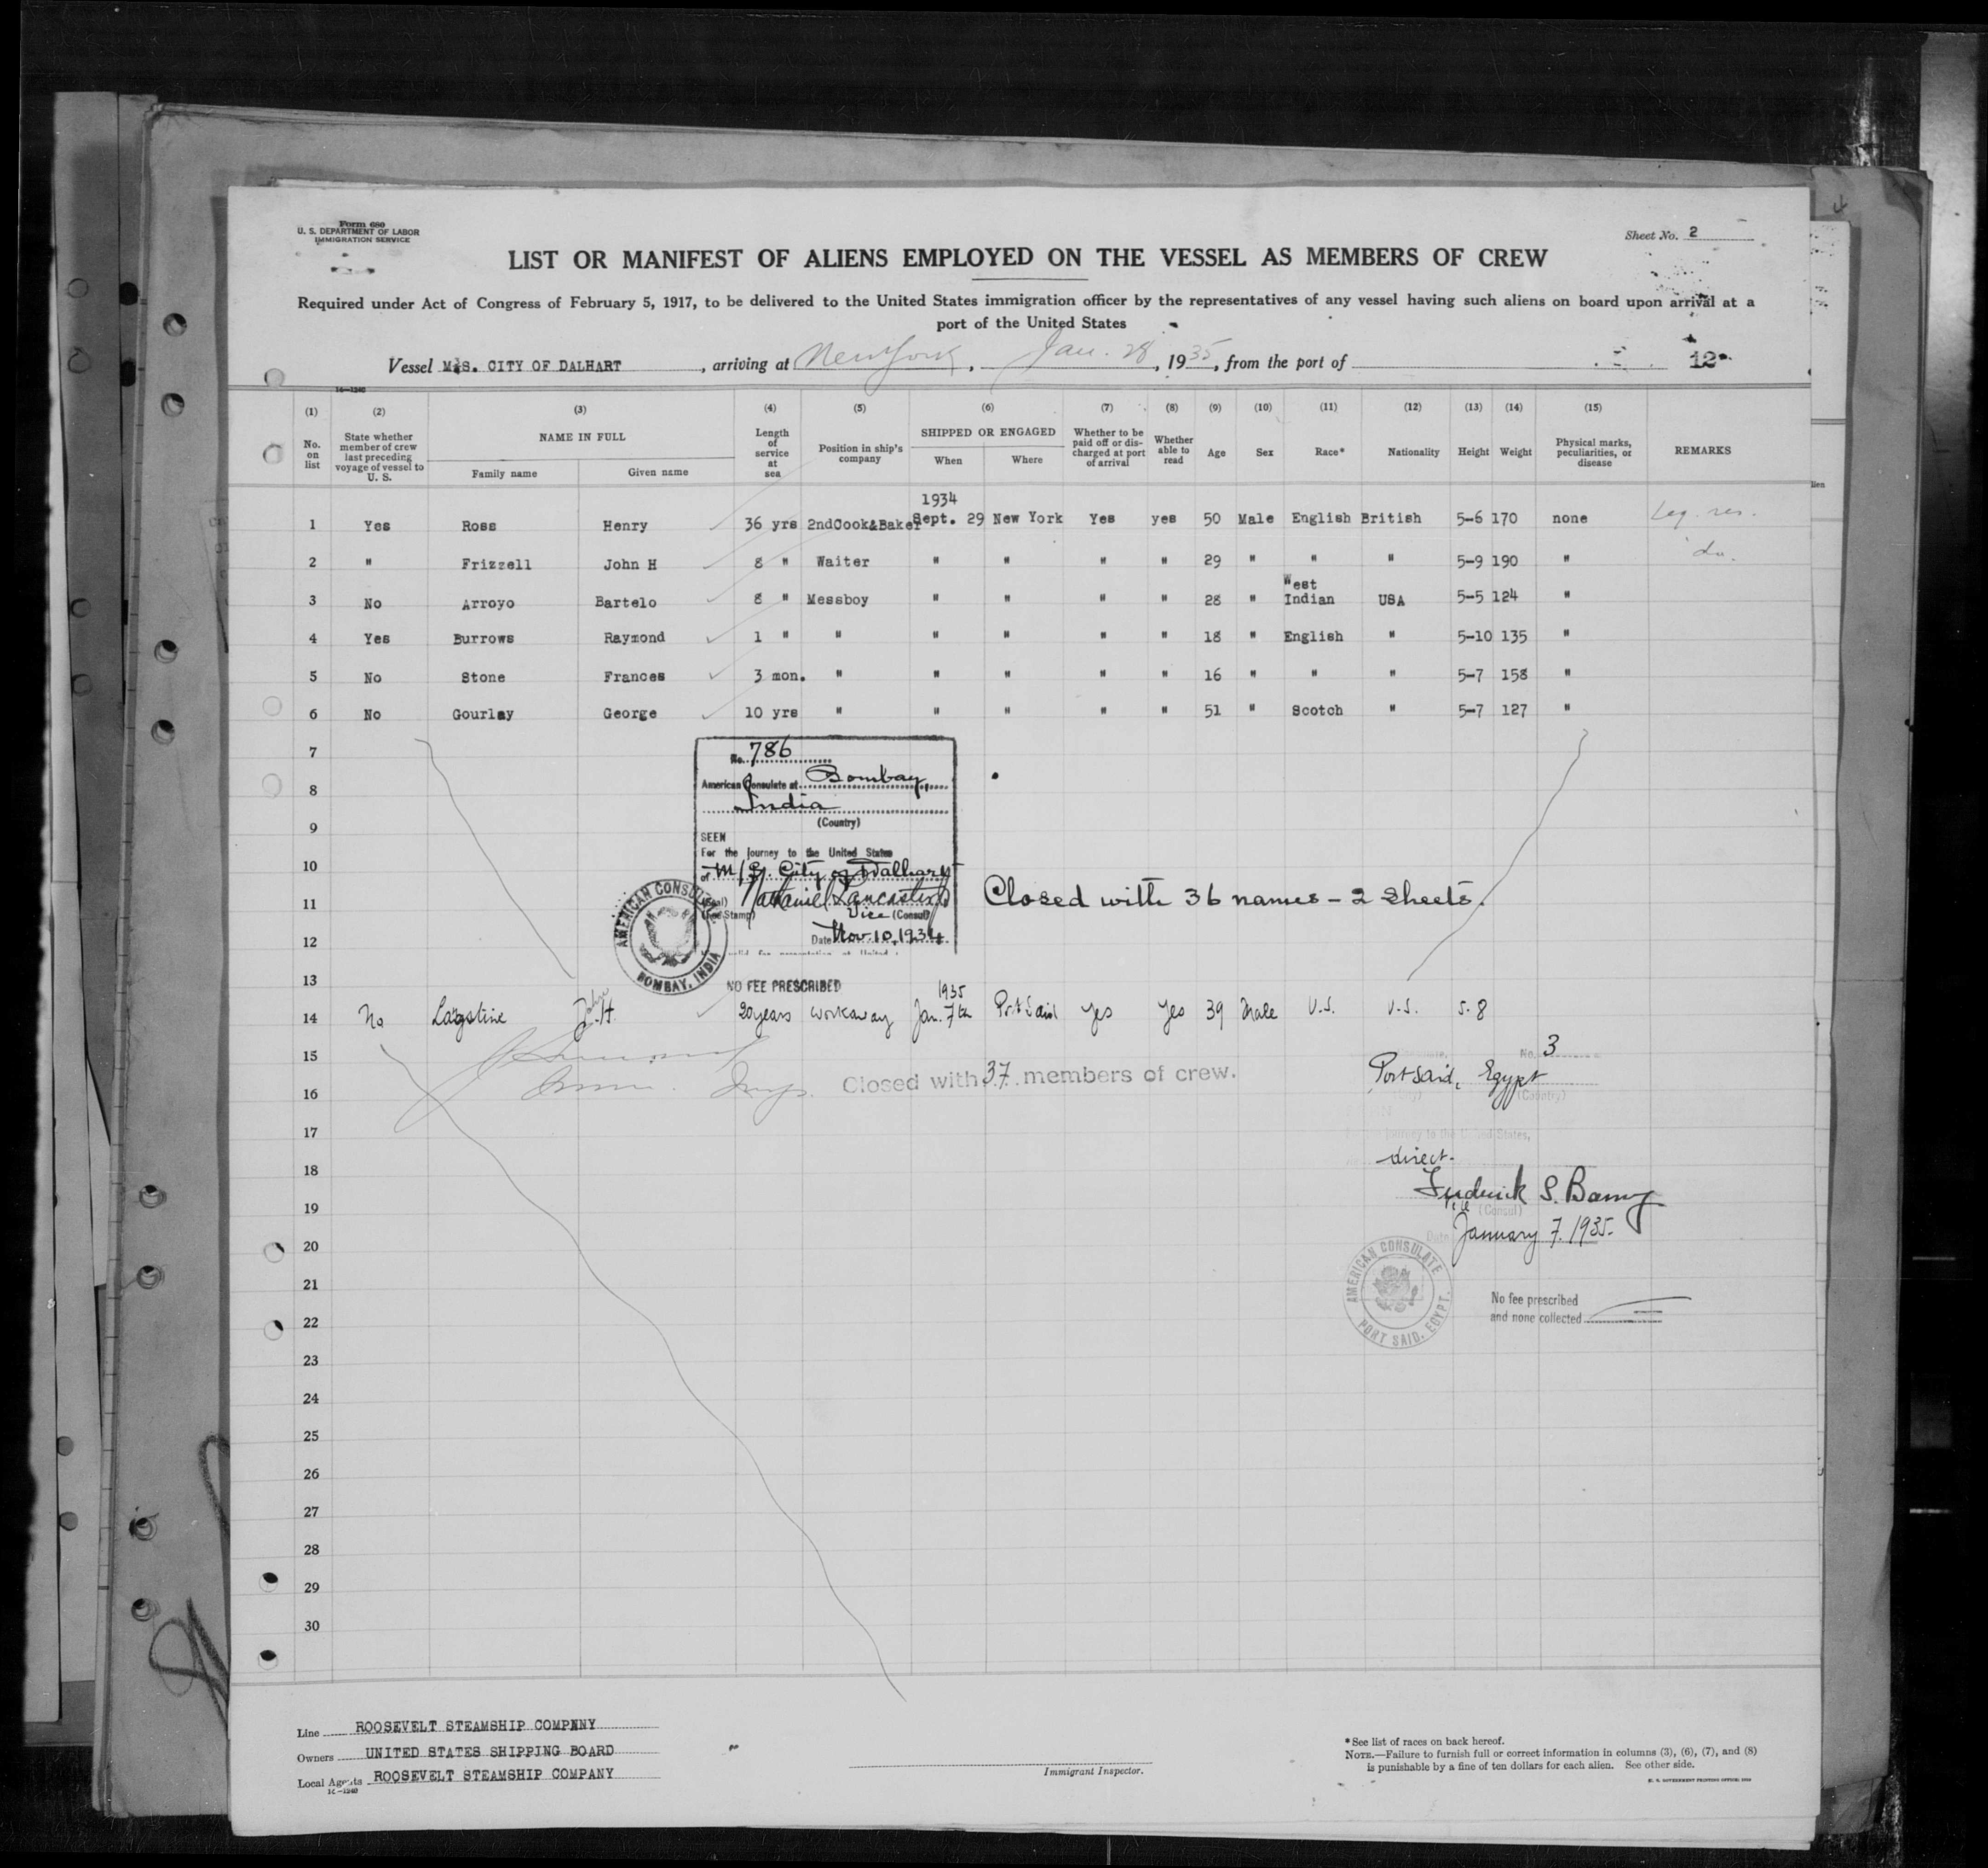 Form 680
U. S. DEPARTMENT OF LABOR
IMMIGRATION SERVICE
Sheet No. 2
LIST OR MANIFEST OF ALIENS EMPLOYED ON THE VESSEL AS MEMBERS OF CREW
Required under Act of Congress of February 5, 1917, to be delivered to the United States immigration officer by the representatives of any vessel having such aliens on board upon arrival at a
port of the United States
Vessel M.S. CITY OF DALHART, arriving at New York, Jan. 28, 1935, from the port of 12
16—1240
(1) (2) (3) (4) (5) (6) (7) (8) (9) (10) (11) (12) (13) (14) (15)
No. on list
State whether member of crew last preceding voyage of vessel to U. S.
NAME IN FULL
Family name Given name
Length of service at sea
Position in ship's company
SHIPPED OR ENGAGED
When Where
Whether to be paid off or discharged at port of arrival
Whether able to read
Age Sex Race* Nationality Height Weight
Physical marks, peculiarities, or disease
REMARKS
1934
1 Yes Ross Henry 36 yrs 2ndCook&Baker Sept. 29 New York Yes yes 50 Male English British 5-6 170 none Leg. res.
2 " Frizzell John H 8 " Waiter " " " " 29 " " " 5-9 190 " do.
3 No Arroyo Bartelo 8 " Messboy " " " " 28 " West Indian USA 5-5 124 "
4 Yes Burrows Raymond 1 " " " " " " 18 " English " 5-10 135 "
5 No Stone Frances 3 mon. " " " " " 16 " " " 5-7 158 "
6 No Gourlay George 10 yrs " " " " " 51 " Scotch " 5-7 127 "
7
8
9
10
11
12
13
No. 786
American Consulate at Bombay,
India
(Country)
SEEN
For the journey to the United States
of M/S. City of Dalhart
Nathaniel Lancaster Jr
(Seal)
(Fee Stamp)
Vice (Consul)
Date Nov. 10, 1934
AMERICAN CONSULATE
BOMBAY, INDIA
NO FEE PRESCRIBED
Closed with 36 names - 2 sheets.
1935
14 No John H. 20 years workaway Jan. 7th Port Said Yes Yes 39 Male U.S. U.S. 5-8
15
16
Closed with 37 members of crew.
No. 3
Port Said, Egypt
(City) (Country)
journey to the United States,
direct.
Frederick S. Barny
Vice (Consul)
Date January 7, 1935.
AMERICAN CONSULATE
PORT SAID, EGYPT.
No fee prescribed
and none collected
17
18
19
20
21
22
23
24
25
26
27
28
29
30
Line ROOSEVELT STEAMSHIP COMPNNY
Owners UNITED STATES SHIPPING BOARD
Local Agents ROOSEVELT STEAMSHIP COMPANY
16—1240
Immigrant Inspector.
* See list of races on back hereof.
NOTE.—Failure to furnish full or correct information in columns (3), (6), (7), and (8)
is punishable by a fine of ten dollars for each alien. See other side.